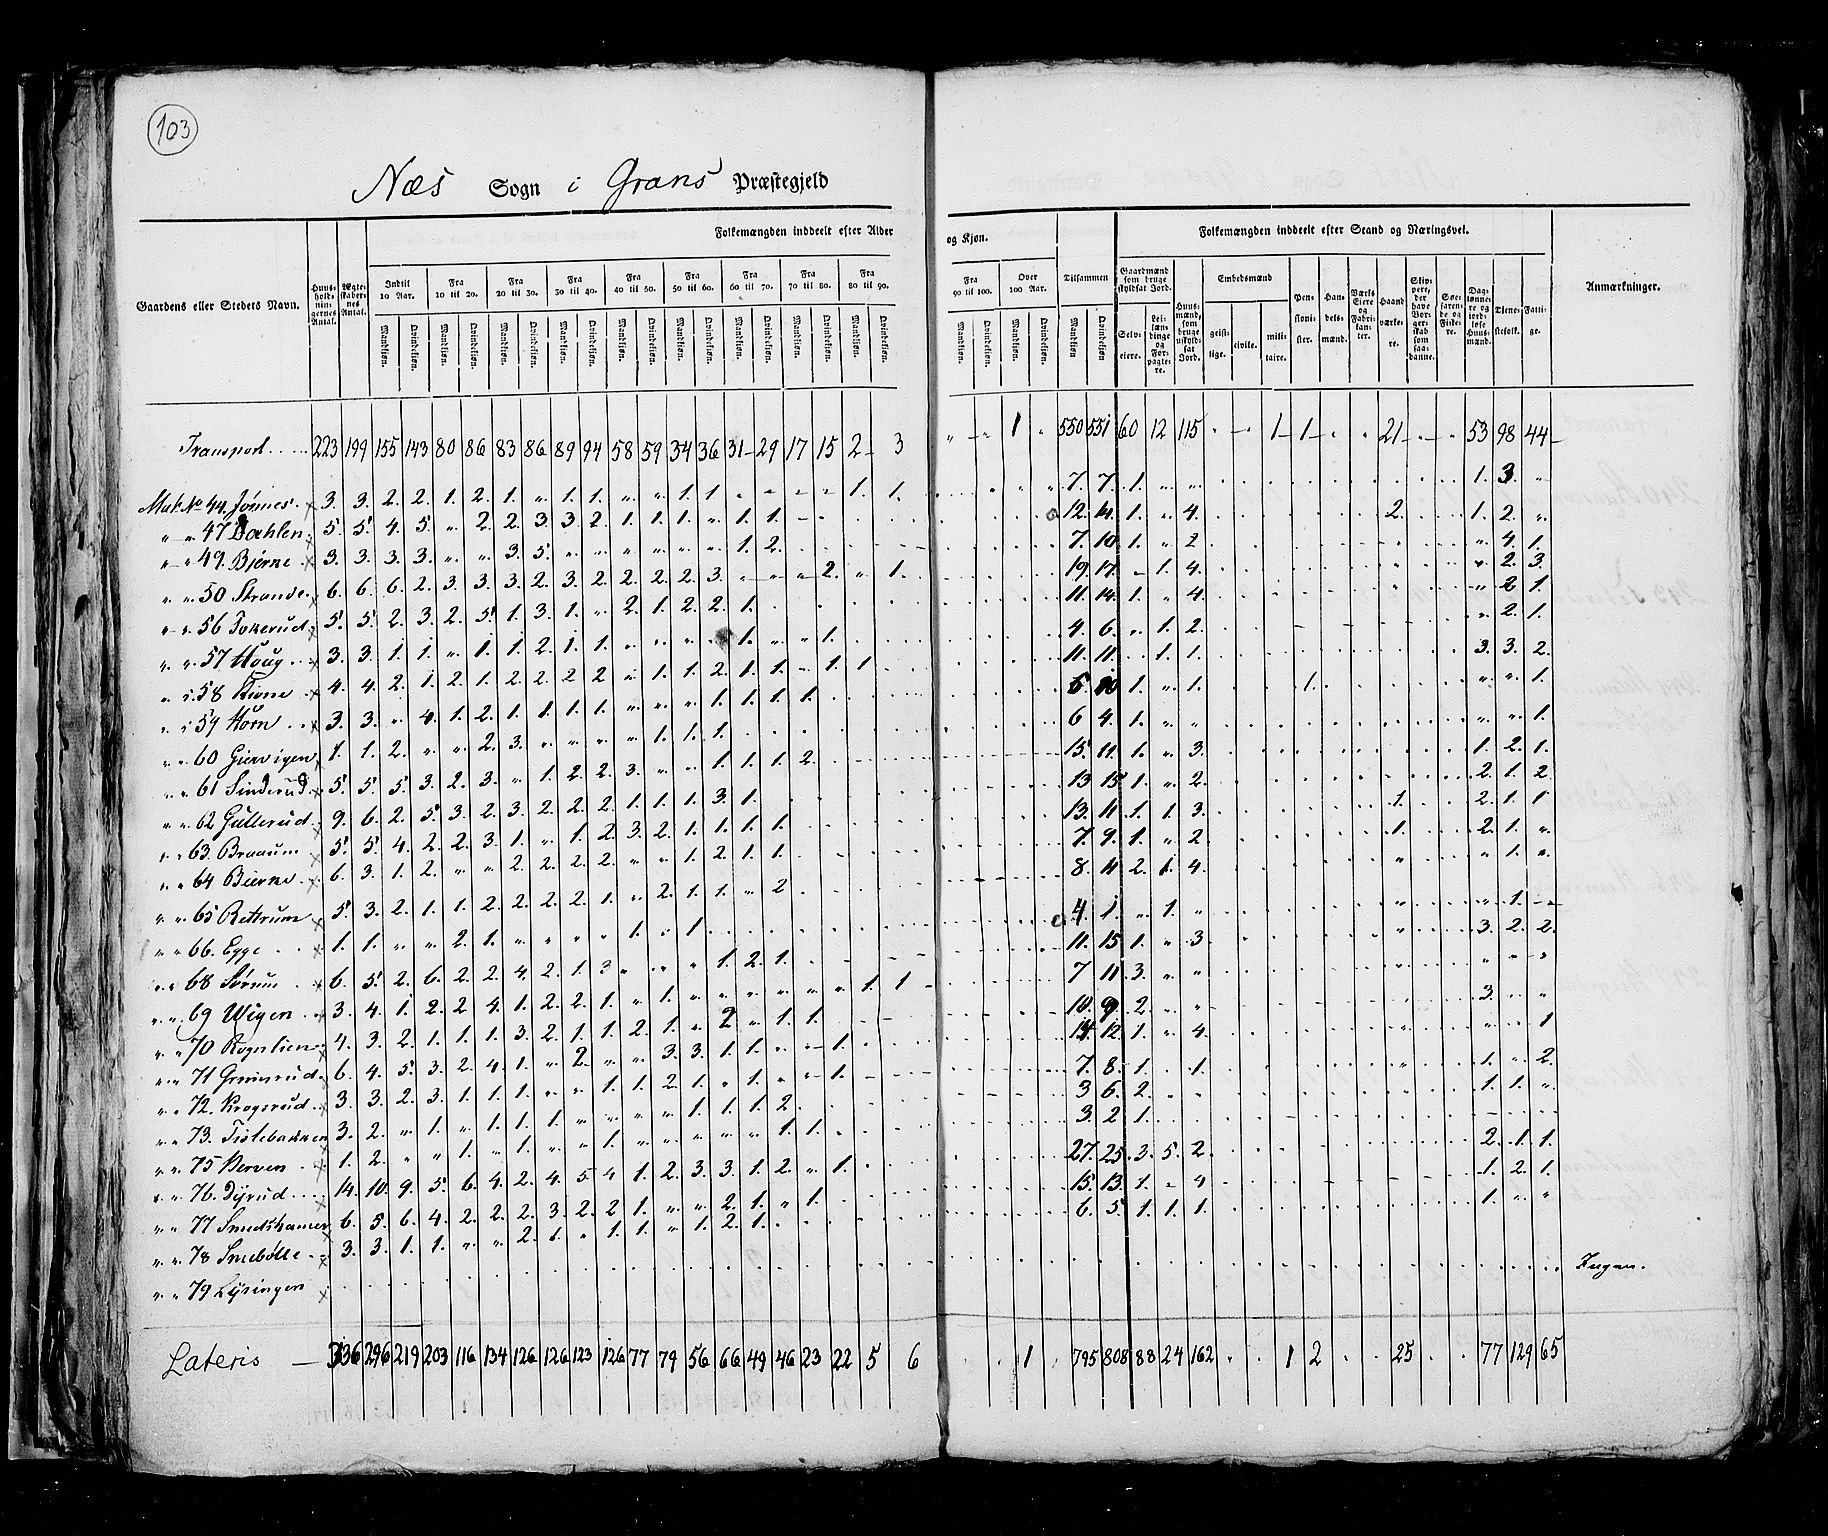 103
Næs Sogn i Grans Præstegjeld
Folkemængden inddeelt efter Alder og Kjøn.
Folkemængden inddeelt efter Stand og Næringsvei.
Gaardens eller Stedets Navn.
Huus-holdningernes Antal.
Ægteskabernes Antal.
Indtil 10 Aar.
Fra 10 til 20.
Fra 20 til 30.
Fra 30 til 40.
Fra 40 til 50.
Fra 50 til 60.
Fra 60 til 70.
Fra 70 til 80.
Fra 80 til 90.
Fra 90 til 100.
Over 100 Aar.
Tilsammen
Mandkjøn Qvindekjøn.
Gaardmænd som bruge skyldsat Jord.
Selveiere.
Leilændinge og Forpagtere.
Huusmænd, som bruge uskyldsat Jord.
Embedsmænd
geistlige.
civile.
militaire.
Pensionister.
Handelsmænd.
Værks Eiere og Fabrikanter.
Haandværkere.
Skippere, der have Borgerskab som saadanne.
Søefarende og Fiskere.
Daglønnere og jordløse Huusmænd.
Tjenestefolk.
Fattige.
Anmærkninger.
Transport 223 199 155 143 80 86 83 86 89 94 58 59 34 36 31 29 17 15 2 3 1 550 551 60 12 115 1 1 21 53 98 44
Mat. No 44 Jørnes 3. 3. 2. 2. 1. 2. 1. „ 1. 1. „ „ 1. 1 1. 1. 7. 7. 1. „ „ 1. 3. „
„ „ 47 Dæhlen 5. 5. 4. 5. „ 2. 2. 3. 3. 2. 1. 1. 1. „ 1. 1. 12. 14. 1. „ 4. 2. 1. 2. „
„ „ 49. Bjerne 3. 3. 3. 3. „ „ 3. 5. 1. 2. 7. 10. 1. „ 2 4. 1.
„ „ 50 Strande 6. 6. 6. 2. 3. 3. 3. 2. 3. 2. 2. 2. 2. 3. 2. 1. 19. 17. 1. 4. 2. 3.
„ „ 56 Tokerud 5. 5. 2. 3. 2. 5. 1. 3. 1. „ 2. 1. 2. 2. 1. 11. 14. 1. „ 4. 2. 1.
„ „ 57 Houg 3. 3. 1. 1. „ 1. 1. 2. 1. 1. 1. 1. 4. 6. „ 1. 2. 2. 1.
„ „ 58 4. 4. 2. 1. 2. 1. 2. 2. 2 2 „ 1. 1. 2. 1. 1. 1. 1. 11. 11. 1. 1. 3. 3. 2.
„ „ 59 Horn 3. 3. „ 4. 1. 2. 1. 1. 1. 1. 1. 1. 1. 1. 1. „ 1. 1. 1.
„ „ 60 Giervigen 1. 1. 2. „ „ 2. 3. 1. 1. 1. 6 4. 1. „ „ 1.
„ „ 61 Sinderud 5. 5. 5. 3. 2. 3. „ 1. 2. 2. 3. „ „ 1. 1. 1. 2. 15. 11. 1. „ 3. 1. 2. 1.
„ „ 62 Gullerud 9. 6. 2. 5. 3. 2. 3. 2. 2. 2. 1. 1. 1. 3. 1. 13 15. 1. „ 2. 2. 1. 2.
„ „ 63. Braaum 5. 5. 4. 2. 2. 3. 1. „ 1. 2. 3. 2. 1. 1. 1. 1. 13. 11. 1. 1. 3. 1. 2. 1. 1
„ „ 64 Bierke 6. 3. 1. 2. „ „ 2. 2. 2. 2. „ „ 1. 2. 1. 1. 7. 9. 1. „ 2. 1. 2. 1. „
„ „ 65 Rettrum 5. 3. 2. 1. 1. 2. 2. 2. 2. 1. „ 2. 1. 1. „ 2 8. 11 2. 1. 4. „ 1. „
„ „ 66. Egge 1. 1. „ „ 2. 1. 1. 1. 4. 1. „ 1. „ 1.
„ „ 68 Sørum 6. 5. 2. 6. 2. 2. 4. 2. 1. 3 1. 2. 1. 11. 15 1. „ 3. 3. 2. 2.
„ „ 69 Wigen 3. 4. 1. 2. 2 4. 1. 2. 2. 1. „ 1. 1. 1 7 11. 3. „ „
„ „ 70 Rognlien 4. 3. 2. 1. 1. 1. 3. 2. 1. 1. 2. 1. „ 2 „ 1. 1. 10. 9. 2. 3.
„ „ 71 Grinerud 6. 4. 5. 3. 2. 4. 1. „ 2. „ „ 3. 3. 1. 1. 1. 14. 12. 1. „ 4. 1
„ „ 72. Krogsrud 3. 3. 2. 3. 1. 1. 1. 1. 1. 2. 1. „ 1. 1. 7. 8. 1. 1. 1. 2.
„ „ 73. Tislebakken 3. 2. „ 1. „ 1. 1. 1. 1. 1. 1. 2. 3 6. 2. 1. 1.
„ „ 75 1. 2. 1. „ 1. 1. 1. 1. 3. 2 1.
„ „ 76. Dyrud 14. 10. 9. 5. 6. 4. 2. 4. 5. 4 1. 2. 3. 3. 1. 2. „ 1. 27. 25. 3. 5. 2. 2. 1. 1.
„ „ 77 Smedshamer 6. 5. 6. 4. 2. 2. 2. 3. 2. 2 1. 2. 1. „ 1. 15. 13. 1. 1. 2. 1.
„ „ 78 Smebølle 3. 3. 1. 1. „ „ 2. 1. „ 1. 1. „ 1. 2. 1. 6. 5. 1. 1. 1. 1.
„ „ 79 Lysingen Ingen.
Lateris 336 296 219 203 116 134 126 126 123 126 77 79 56 66 49 46 23 22 5 6 1 795 808 88 24 162 1 2 25 77 129 65